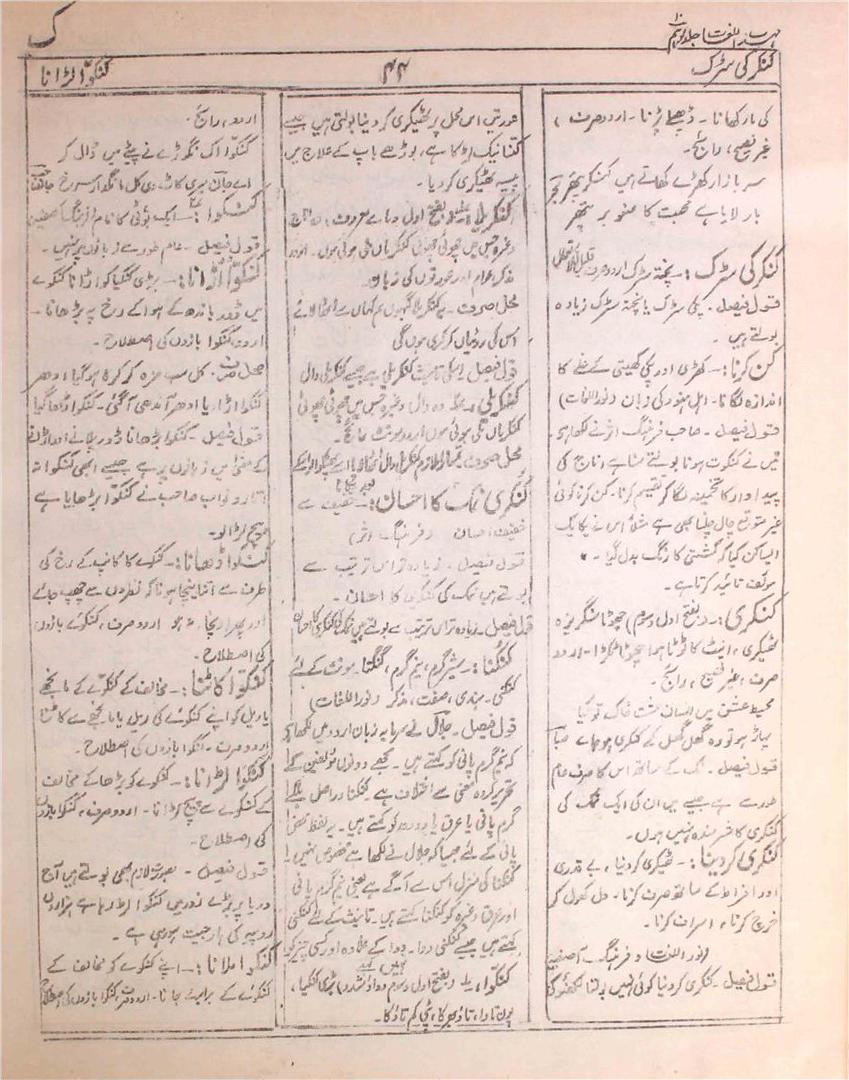 مہذب اللغات جلد دہم
ک
کنکر کی سڑک
۴۴
کنکوّا لڑانا
کی مار کھانا۔ ڈھیلے پڑنا۔ اردو صرف،
غیر فصیح، رائج۔
سر بازار کھڑے کھاتے ہیں کنکر پتھر
بار لایا ہے محبت کا صنوبر پتھر
کنکر کی سڑک :۔ پختہ سڑک اردو صرف قلیل الاستعمال
قول فیصل۔ پکی سڑک یا پختہ سڑک زیادہ
بولتے ہیں۔
کن کرنا :۔ کھڑی اور پکی کھیتی کے غلے کا
اندازہ لگانا۔ اہل ہنود کی زبان (نور اللغات)
قول فیصل۔ صاحب فرہنگ اثر نے لکھا ہے
میں نے کنکوت ہونا بولتے سنا ہے، اناج کی
پیداوار کا تخمینہ لگا کر تقسیم کرنا۔ کن کرنا کوئی
غیر متوقع چال چلنا بھی ہے مثلاً اس نے یکایک
ایسا کن کیا کہ کشتی کا رنگ بدل گیا۔
مولف تائید کرتا ہے۔
کنکری :۔ (بفتح اول و سوم) چھوٹا سنگریزہ
ٹھیکری، اینٹ کا ٹوٹا ہوا چھوٹا ٹکڑا۔ اردو
صرف، غیر فصیح، رائج۔
محیط عشق میں انسان مشت خاک تو کیا
پہاڑ ہو تو وہ گھل گھل کے کنکری ہو جائے صبا
قول فیصل۔ نمک کے ساتھ اس کا صرف عام
طور سے ہے جیسے میں ان کی ایک نمک کی
کنکری کا شرمندہ نہیں ہوں۔
کنکری کر دینا :۔ ٹھیکری کر دینا، بے قدری
اور افراط کے ساتھ صرف کرنا۔ دل کھول کر
خرچ کرنا، اسراف کرنا۔
(نور اللغت) و فرہنگ آصفیہ
قول فیصل۔ کنکری کر دینا کوئی نہیں بولتا لکھنؤ کی
عورتیں اس محل پر ٹھیکری کر دینا بولتی ہیں جیسے
کتنا نیک لڑکا ہے، بوڑھے باپ کے علاج میں
پیسہ ٹھیکری کر دیا۔
کنکریلا :۔ بفتح اول و یائے معروف،
وغیرہ جس میں چھوٹی چھوٹی کنکریاں ملی ہوئی ہوں۔ اردو
مذکر عوام اور عورتوں کی زبان
محل صرف۔ یہ کنکریلا گیہوں تم کہاں سے اٹھا لائے
اس کی روٹیاں کرکری ہوں گی
قول فیصل۔ اسکی تانیث کنکریلی ہے جیسے کنکریلی دال
کنکریلی :۔ وہ دال وغیرہ جس میں چھوٹی چھوٹی
کنکریاں ملی ہوئی ہوں اردو مونث رائج۔
محل صرف۔ ملازم کنکریلی دال اٹھا لایا اسے پھنکوا دیا گیا
کنکری نمک کا احسان :۔ خفیف سے
خفیف احسان (فرہنگ اثر)
قول فیصل۔ زیادہ تر اس ترتیب سے
بولتے ہیں نمک کی کنکری کا احسان۔
قول فیصل۔ زیادہ تر اس ترتیب سے بولتے ہیں نمک کی کنکری کا احسان
کنکنا :۔ شیر گرم، نیم گرم، گنگنا۔ مونث کے لئے
کنکنی۔ ہندی، صفت، مذکر (نور اللغات)
قول فیصل۔ جلال نے سرمایہ زبان اردو میں لکھا ہے
کہ نیم گرم پانی کو کہتے ہیں۔ مجھے دونوں مؤلفین کے
تحریر کردہ معنی سے اختلاف ہے۔ کنکنا دراصل ہلکے
گرم پانی یا عرق یا دودھ کو کہتے ہیں۔ یہ لفظ صرف
پانی کے لئے جیسا کہ جلال نے لکھا ہے مخصوص نہیں
کنکنا کی منزل اس سے آگے ہے یعنی نیم گرم پانی
اور عرق وغیرہ کو کنکنا کہتے ہیں۔ تانیث کے لئے کنکنی
کہتے ہیں جیسے کنکنی دوا۔ دوا کے علاوہ اور کسی چیز کو
نہیں کہتے
کنکوّا :۔ (بفتح اول و سوم و واؤ مشدد) بڑی کنکیا،
پون تاوا، تاؤ بھر کا، پٹی کم تاؤ کا۔
اردو، رائج۔
کنکوّا اک نگوڑے نے پیٹے میں ڈال کر
اے جان میری کاٹ دی کل مانگدار سرخ جان صاحب
کنکوا :۔ ایک بوٹی کا نام (فرہنگ آصفیہ)
قول فیصل۔ عام طور سے زبانوں پر نہیں۔
کنکوّا اڑانا :۔ بڑی کنکیا کو اڑانا کنکوے
میں ڈور باندھ کے ہوا کے رخ پہ بڑھانا۔
اردو کنکوا بازوں کی اصطلاح۔
محل صرف۔ کل سب مزہ کرکرہ ہو گیا ادھر
کنکوا اڑایا ادھر آندھی آ گئی۔
قول فیصل۔ کنکوّا بڑھانا ڈور پلانے اور اڑانے
کے معنی میں زبانوں پر ہے جیسے ابھی کنکوا نہ
اتارو نواب صاحب نے کنکوّا بڑھایا ہے
پیچ لڑا لو۔
کنکوا ڈھانا :۔ کنکوے کا کانپ کے رخ کی
طرف سے اتنا نیچا ہونا کہ نظروں سے چھپ جائے
اور پھر اونچا نہ ہو اردو صرف، کنکوے بازوں
کی اصطلاح۔
کنکوّا کاٹنا :۔ مخالف کے کنکوے کے مانجھے
یا ریل کو اپنے کنکوے کی ریل یا مانجھے سے کاٹنا
اردو صرف۔ کنکوا بازوں کی اصطلاح۔
کنکوّا لڑانا :۔ کنکوے کو بڑھا کے مخالف
کے کنکوے سے پیچ لڑانا۔ اردو صرف، کنکوا بازوں
کی اصطلاح۔
قول فیصل۔ بصورت لازم بھی بولتے ہیں آج
دریا پر بڑے زوروں میں کنکوا لڑ رہا ہے ہزاروں
روپیہ کی ہار جیت ہو رہی ہے۔
کنکوا ملانا :۔ اپنے کنکوے کو مخالف کے
کنکوے کے برابر لے جانا۔ اردو صرف، کنکوا بازوں کی اصطلاح